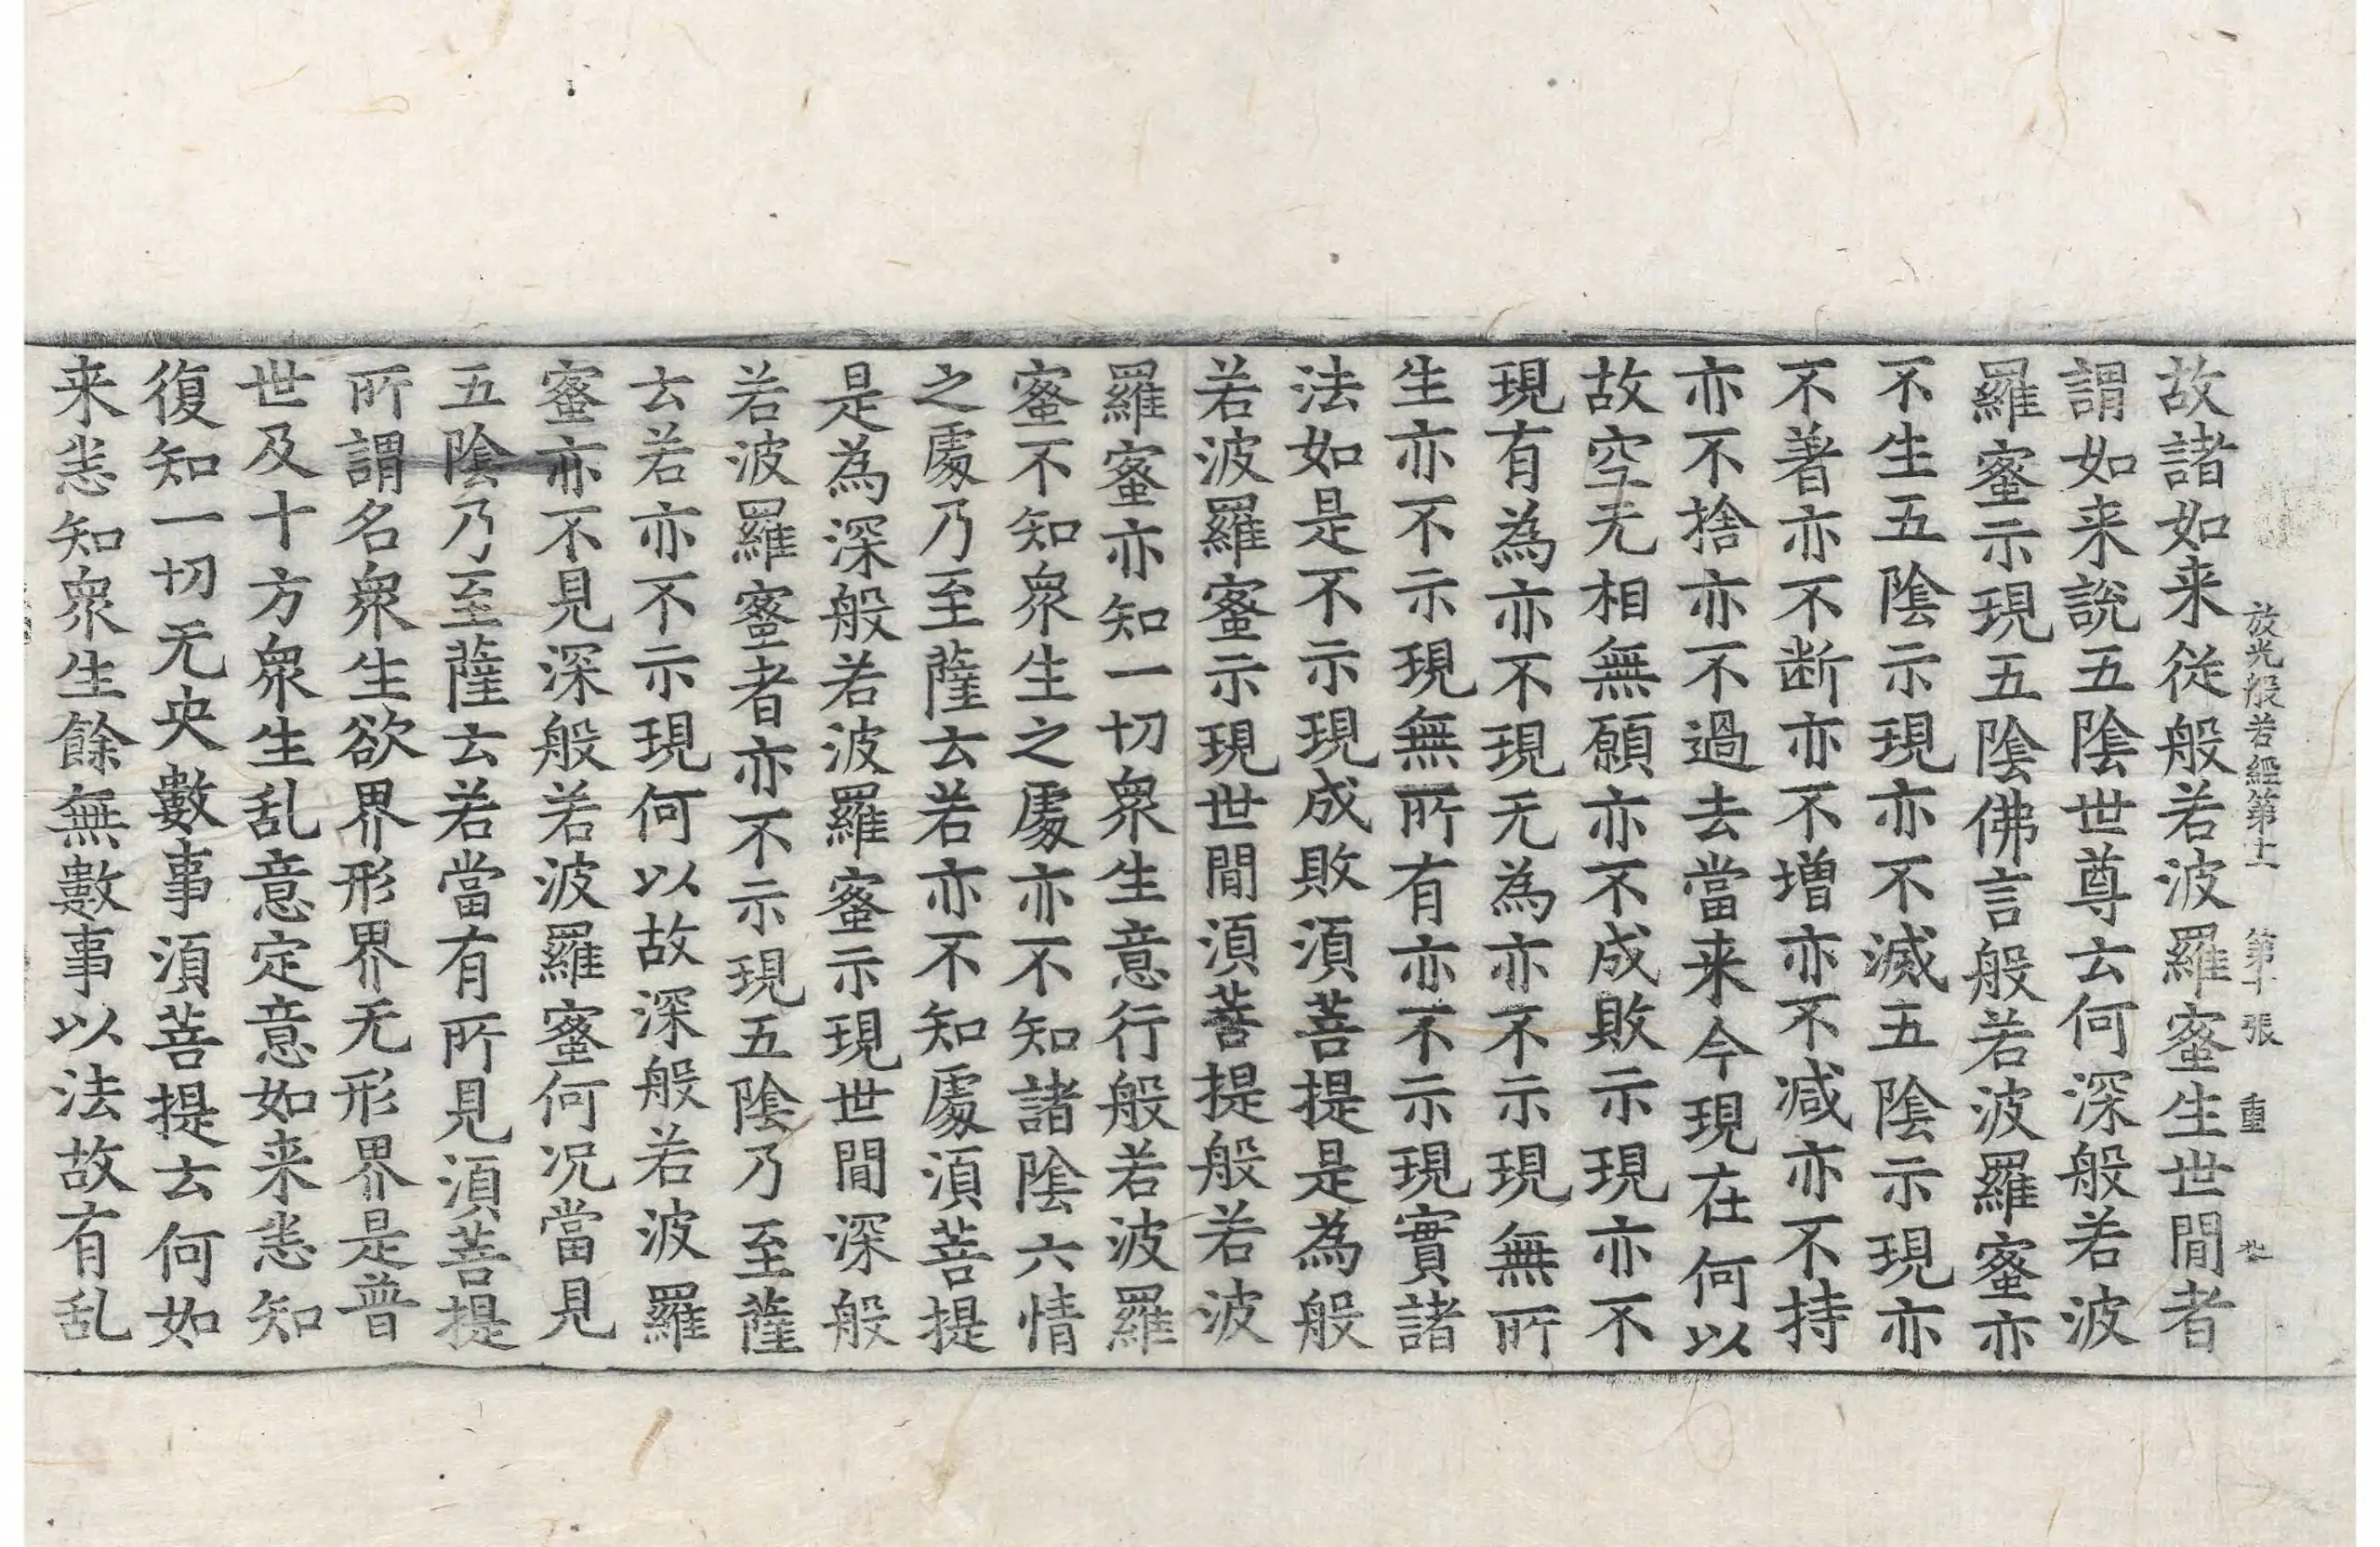 放光般若經第十一 第十張 重
故諸如来従般若波羅蜜生世間者
謂如来說五陰世尊云何深般若波
羅蜜示現五陰佛言般若波羅蜜亦
不生五陰示現亦不滅五陰示現亦
不著亦不断亦不增亦不减亦不持
亦不捨亦不過去當来今現在何以
故空无相無願亦不成敗示現亦不
現有為亦不現无為亦不示現無所
生亦不示現無所有亦不示現實諸
法如是不示現成敗須菩提是為般
若波羅蜜示現世間須菩提般若波
羅蜜亦知一切衆生意行般若波羅
蜜不知衆生之處亦不知諸陰六情
之處乃至薩云若亦不知處須菩提
是為深般若波羅蜜示現世間深般
若波羅蜜者亦不示現五陰乃至薩
云若亦不示現何以故深般若波羅
蜜亦不見深般若波羅蜜何况當見
五陰乃至薩云若當有所見須菩提
所謂名衆生欲界形界无形界是普
世及十方衆生乱意定意如来悉知
復知一切无央數事須菩提云何如
来悉知衆生餘無數事以法故有乱